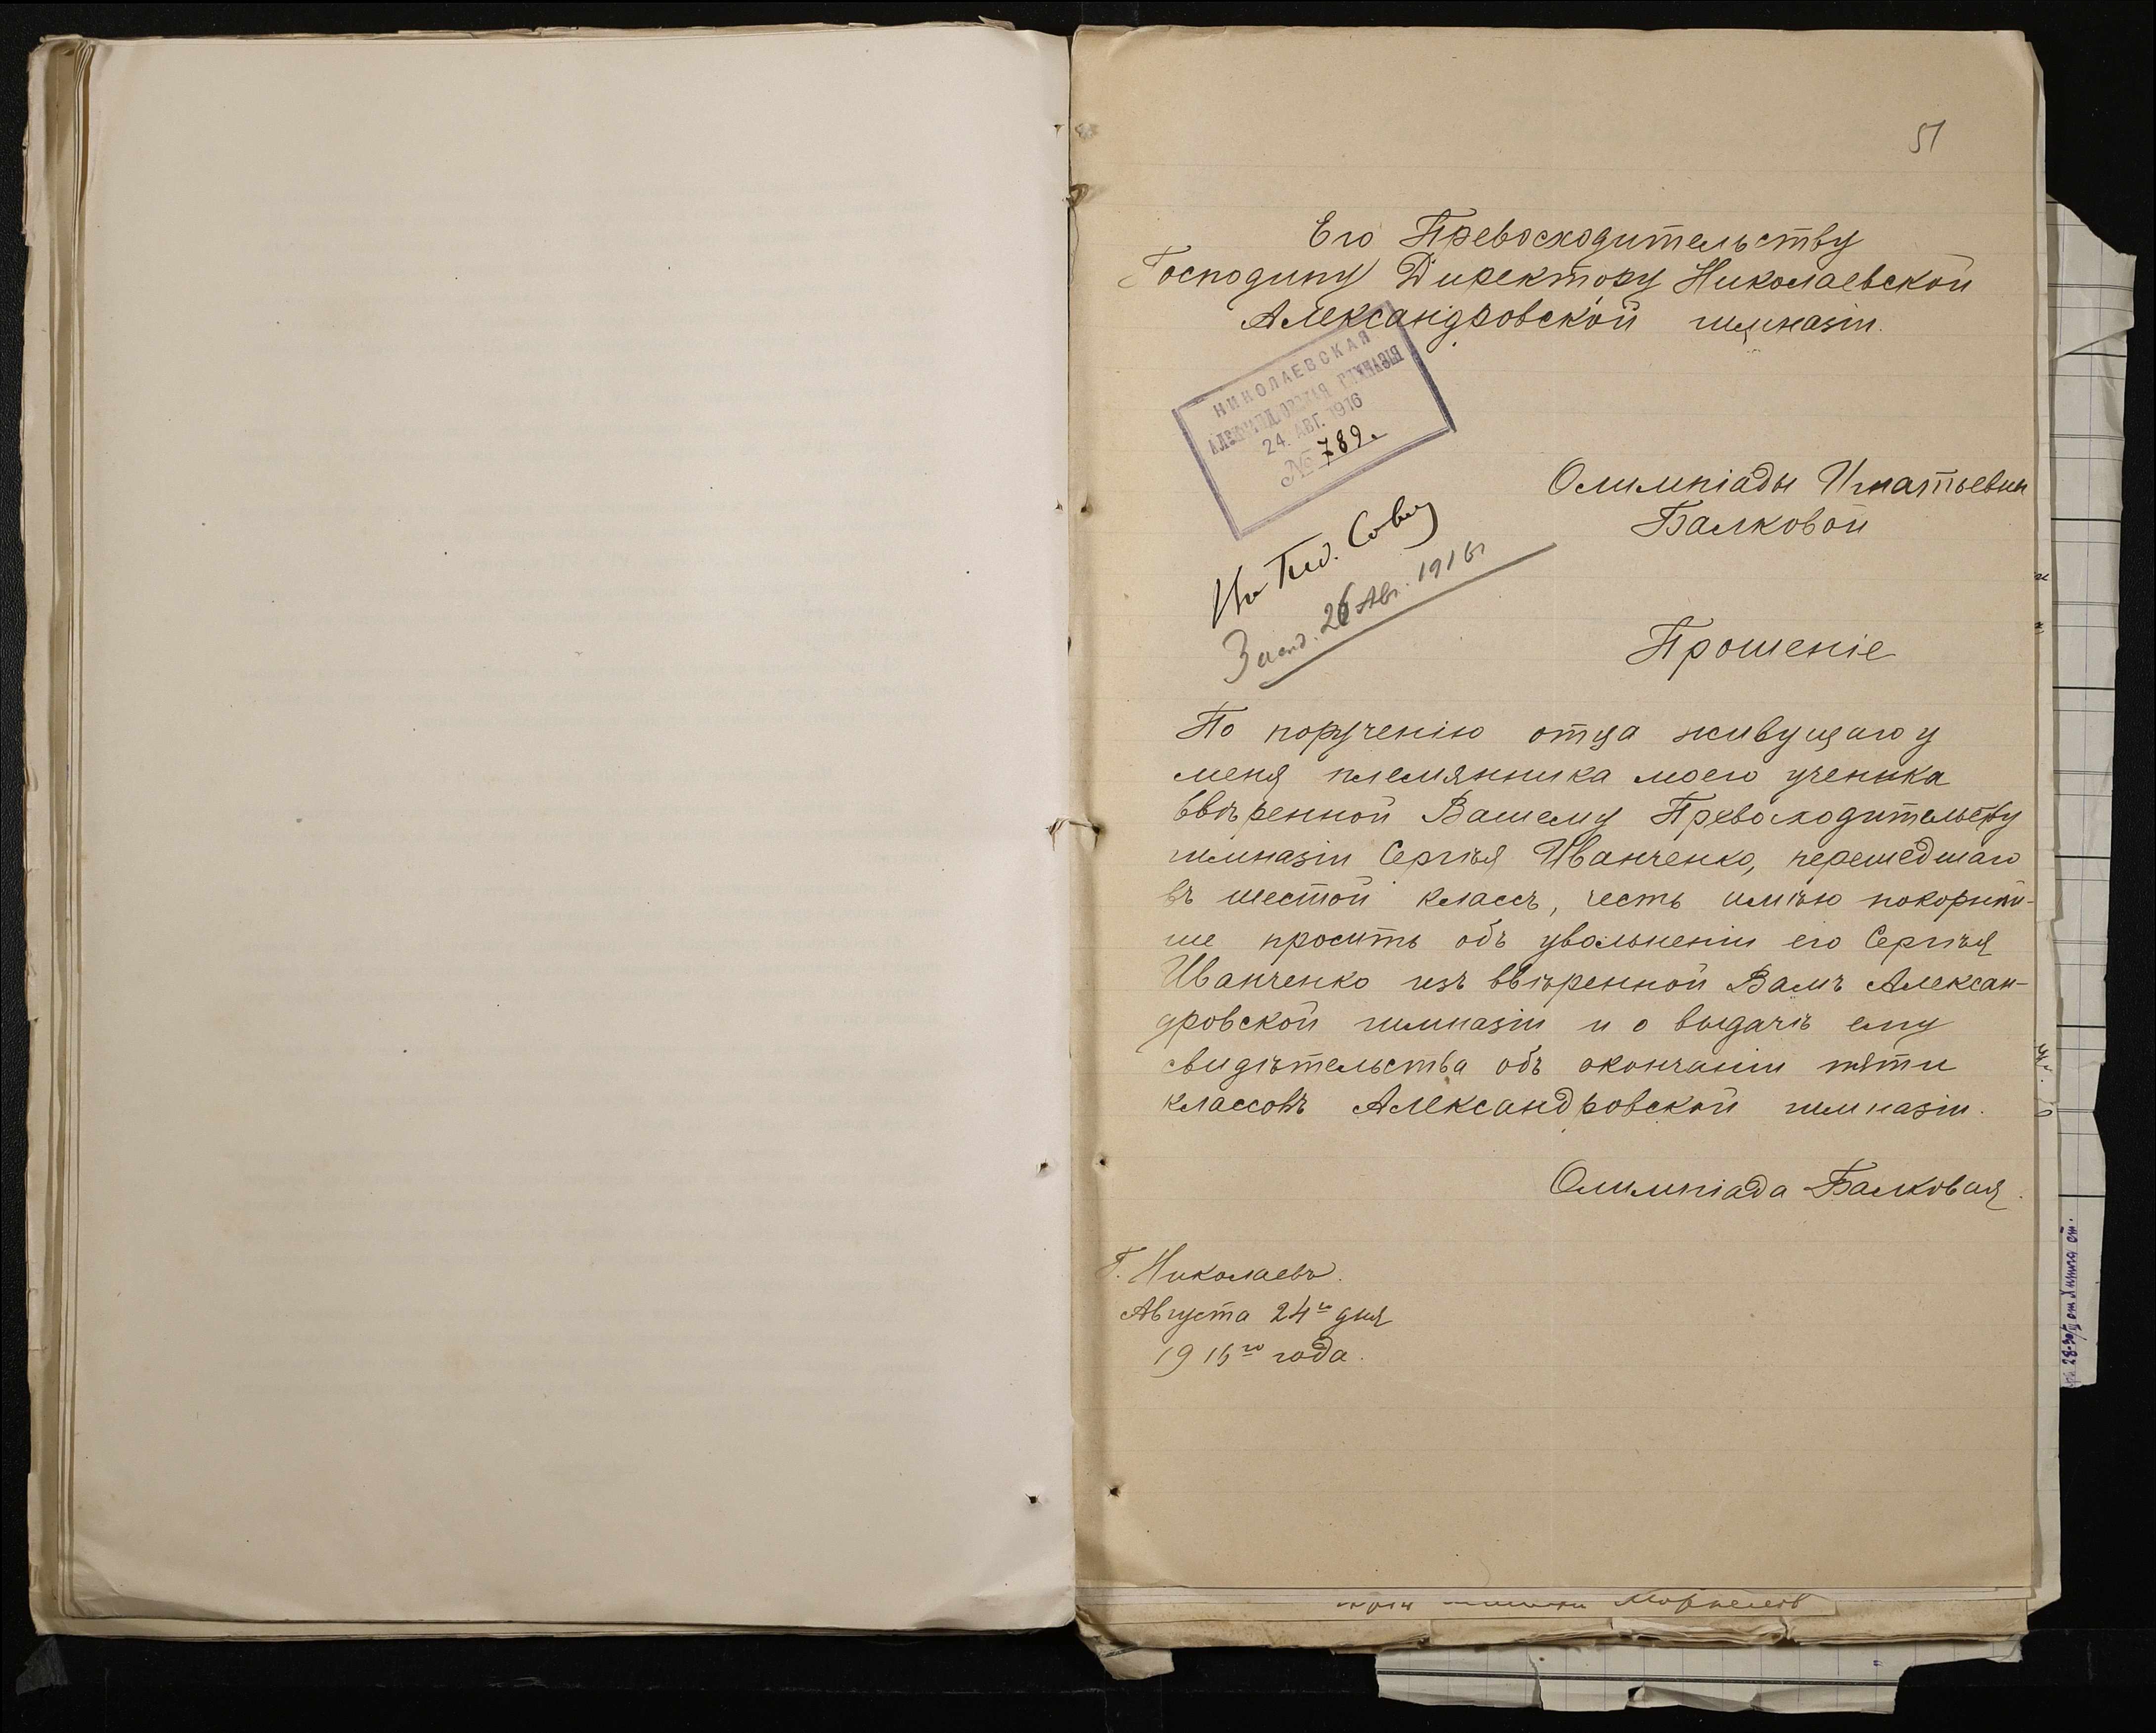 51
Его Превосходительству
Господину Директору Николаевской
Александровской гимназіи.
НИКОЛАЕВСКАЯ
АЛЕКСАНДРОВСКАЯ ГИМНАЗІЯ
24. АВГ. 1916
№ 789.
Олимпіады Игнатьевны
Балковой
На Пед. Совѣ
Засѣд. 26 Авг. 1916 г
Прошеніе
По порученію отца живущаго у
меня племянника моего ученика
ввѣренной Вашему Превосходительству
гимназіи Сергѣя Иванченко, перешедшаго
въ шестой классъ, честь имѣю покорнѣй-
ше просить объ увольненіи его Сергѣя
Иванченко изъ ввѣренной Вамъ Алексан-
дровской гимназіи и о выдачѣ ему
свидѣтельства объ окончаніи пяти
классовъ Александровской гимназіи.
Олимпіада Балковая.
Г. Николаевъ.
Августа 24го дня
1916го года.